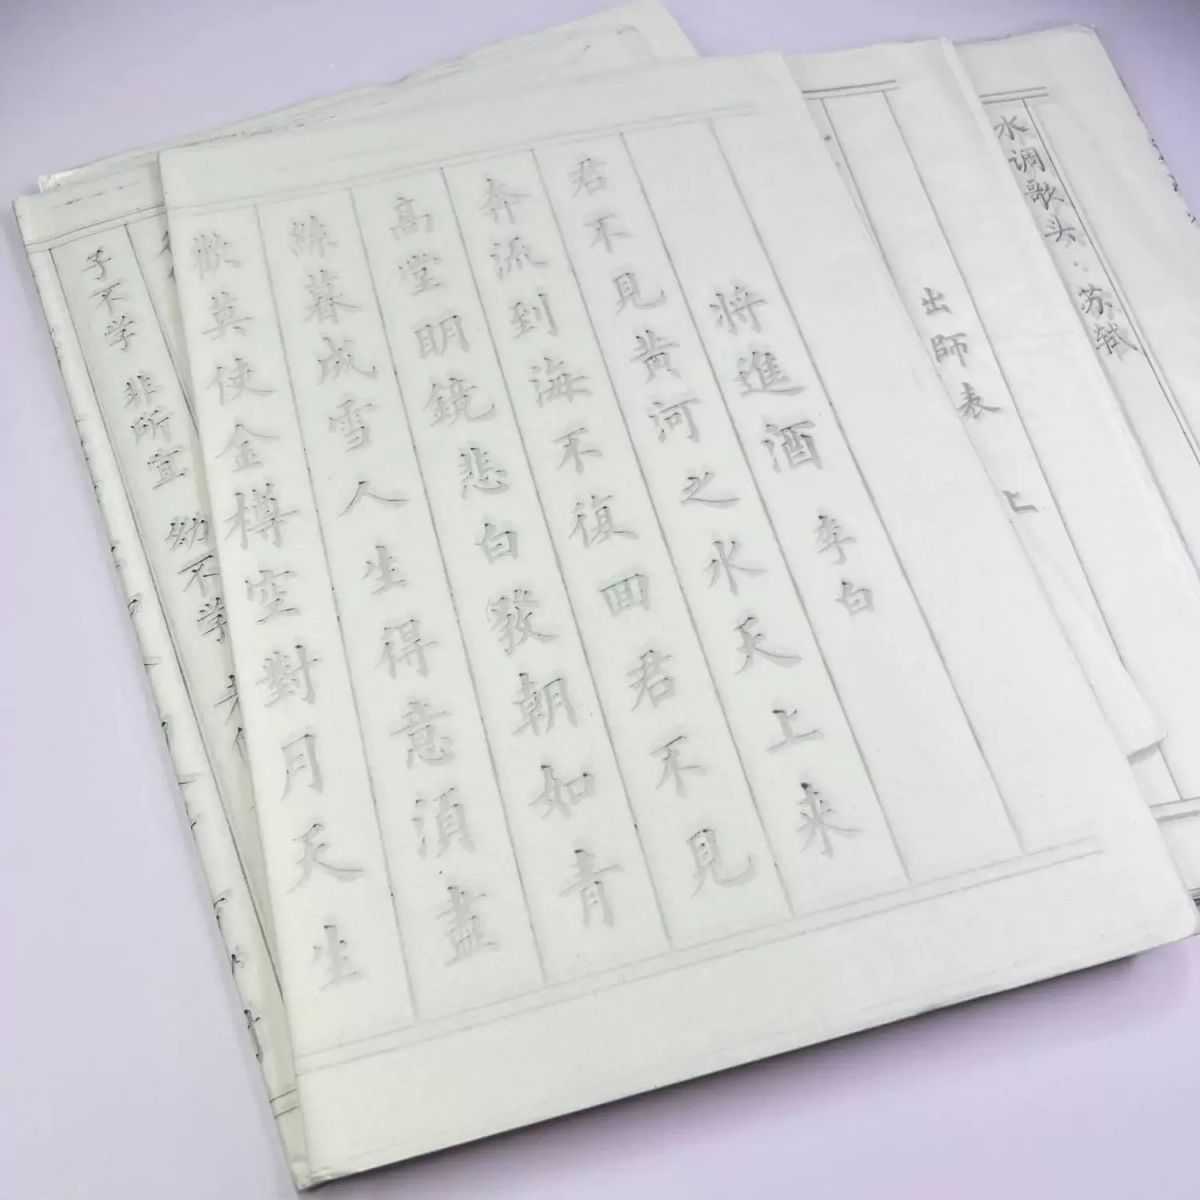 水调歌头·苏轼
出師表 上
將進酒 李白
君不見黄河之水天上来
奔流到海不復回君不見
高堂明鏡悲白發朝如青
絲暮成雪人生得意須盡
歡莫使金樽空對月天生
子不学 非所宜 幼不学 老